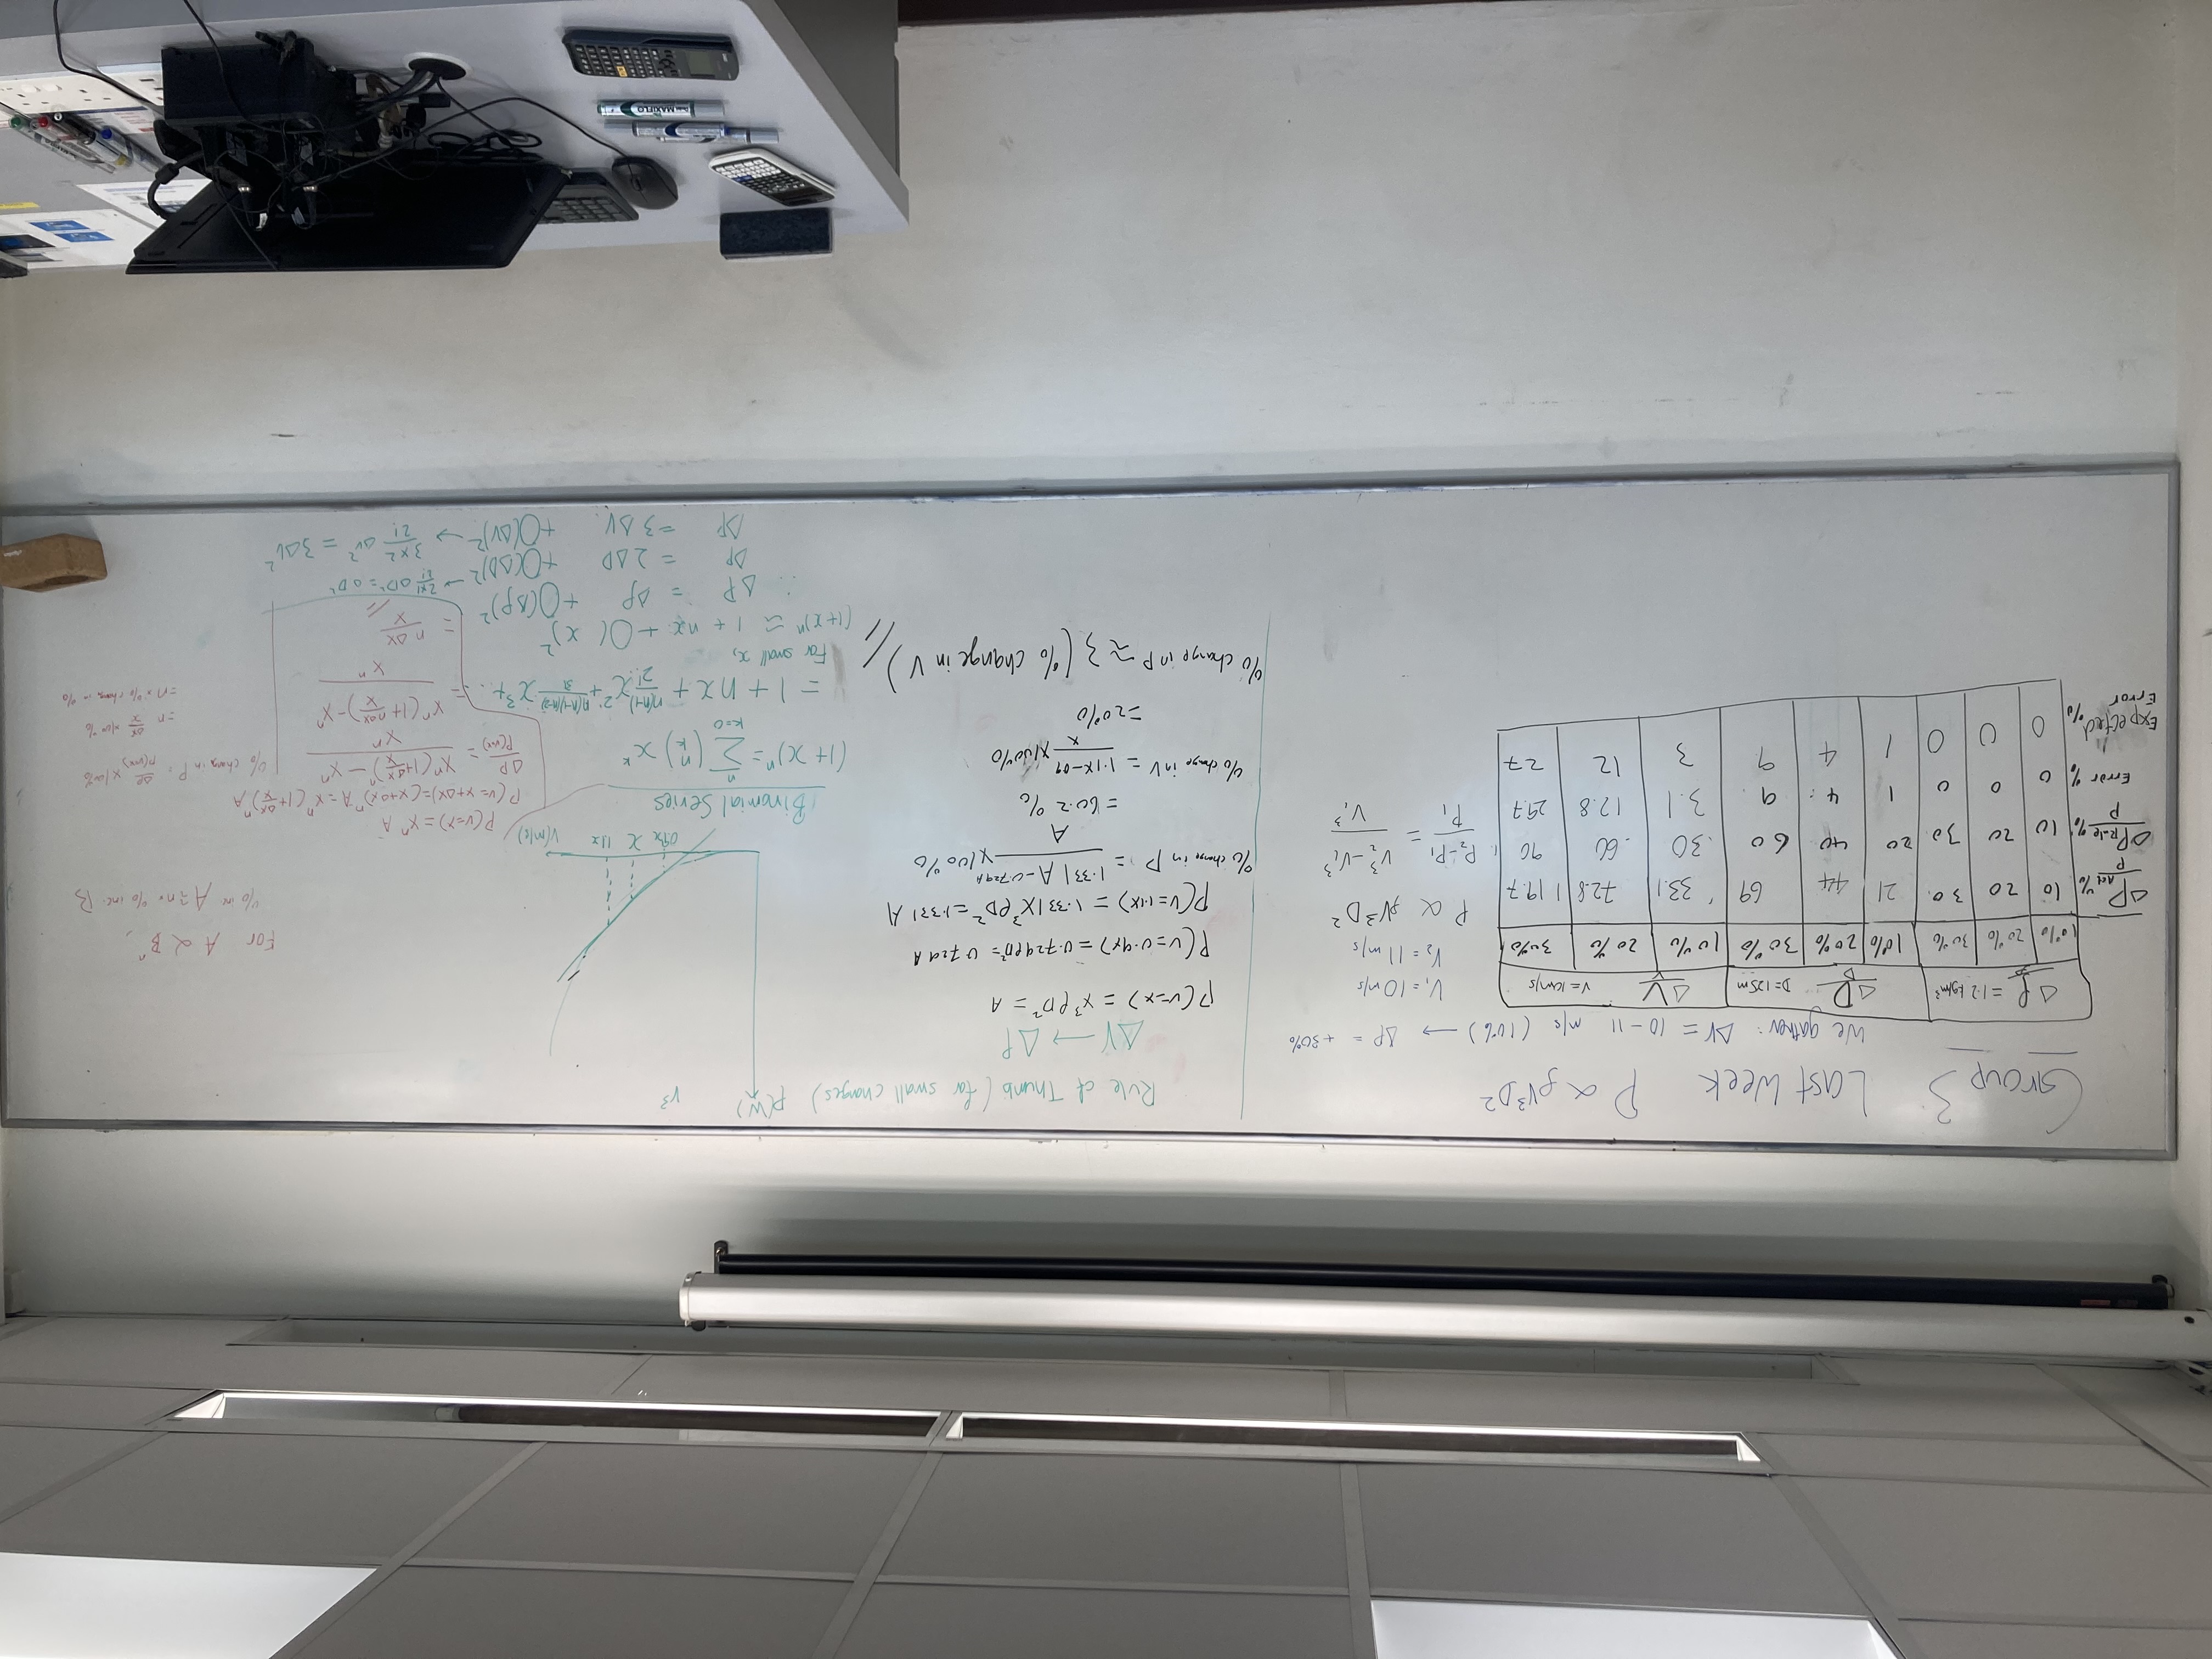 Group 3: Last Week P ∝ ρV³D²
We gather: ΔV = 10-11 m/s (10%) → ΔP = +30%
Δρ/ρ = 1.2 kg/m³ ΔD/D D=125m ΔV/V V=10m/s
10% 20% 30% 10% 20% 30% 10% 20% 30%
ΔP Act/P % 10 20 30. 21 44 69 33.1 72.8 119.7
ΔP Rule/P % 10 20 30 20 40 60 30 60 90
Error % 0 0 0 1 4 9 3.1 12.8 29.7
Expected Error % 0 0 0 1 4 9 3 12 27
V₁ = 10 m/s
V₂ = 11 m/s
P ∝ ρV³D²
(P₂-P₁)/P₁ = (V₂³-V₁³)/V₁³
Rule of Thumb (for small changes)
ΔV → ΔP
P(v=x) = x³ρD² = A
P(v=0.9x) = 0.729ρD² = 0.729A
P(v=1.1x) = 1.331x³ρD² = 1.331 A
% change in P = (1.331 A - 0.729A)/A × 100%
= 60.2 %
% change in V = (1.1x - 0.9)/x × 100%
= 20%
% change in P ≈ 3 (% change in V) //
P(W) V³
0.9x x 1.1x V(m/s)
Binomial Series
(1+x)ⁿ = Σ k=0 n (n k) xᵏ
= 1 + nx + n(n-1)/2! x² + n(n-1)(n-2)/3! x³ + ...
For small x,
(1+x)ⁿ ≈ 1 + nx + O( x)²
∴ ΔP = Δρ + O(Δρ)²
ΔP = 2ΔD + O(ΔD)² → 2×1/2! ΔD² = ΔD²
ΔP = 3ΔV + O(ΔV)² → 3×2/2! ΔV² = 3ΔV²
P(v=x) = xⁿ A
P(v=x+Δx) = (x+Δx)ⁿ A = xⁿ (1+Δx/x)ⁿ A
ΔP/P(v=x) = (xⁿ(1+Δx/x)ⁿ - xⁿ)/xⁿ
= (xⁿ(1+nΔx/x) - xⁿ)/xⁿ
= nΔx/x //
% change in P = ΔP/P(v=x) × 100%
= n Δx/x × 100 %
= n × % change in %
For A ∝ Bⁿ,
% inc. A ≈ n · % inc. B
MAXIFLO